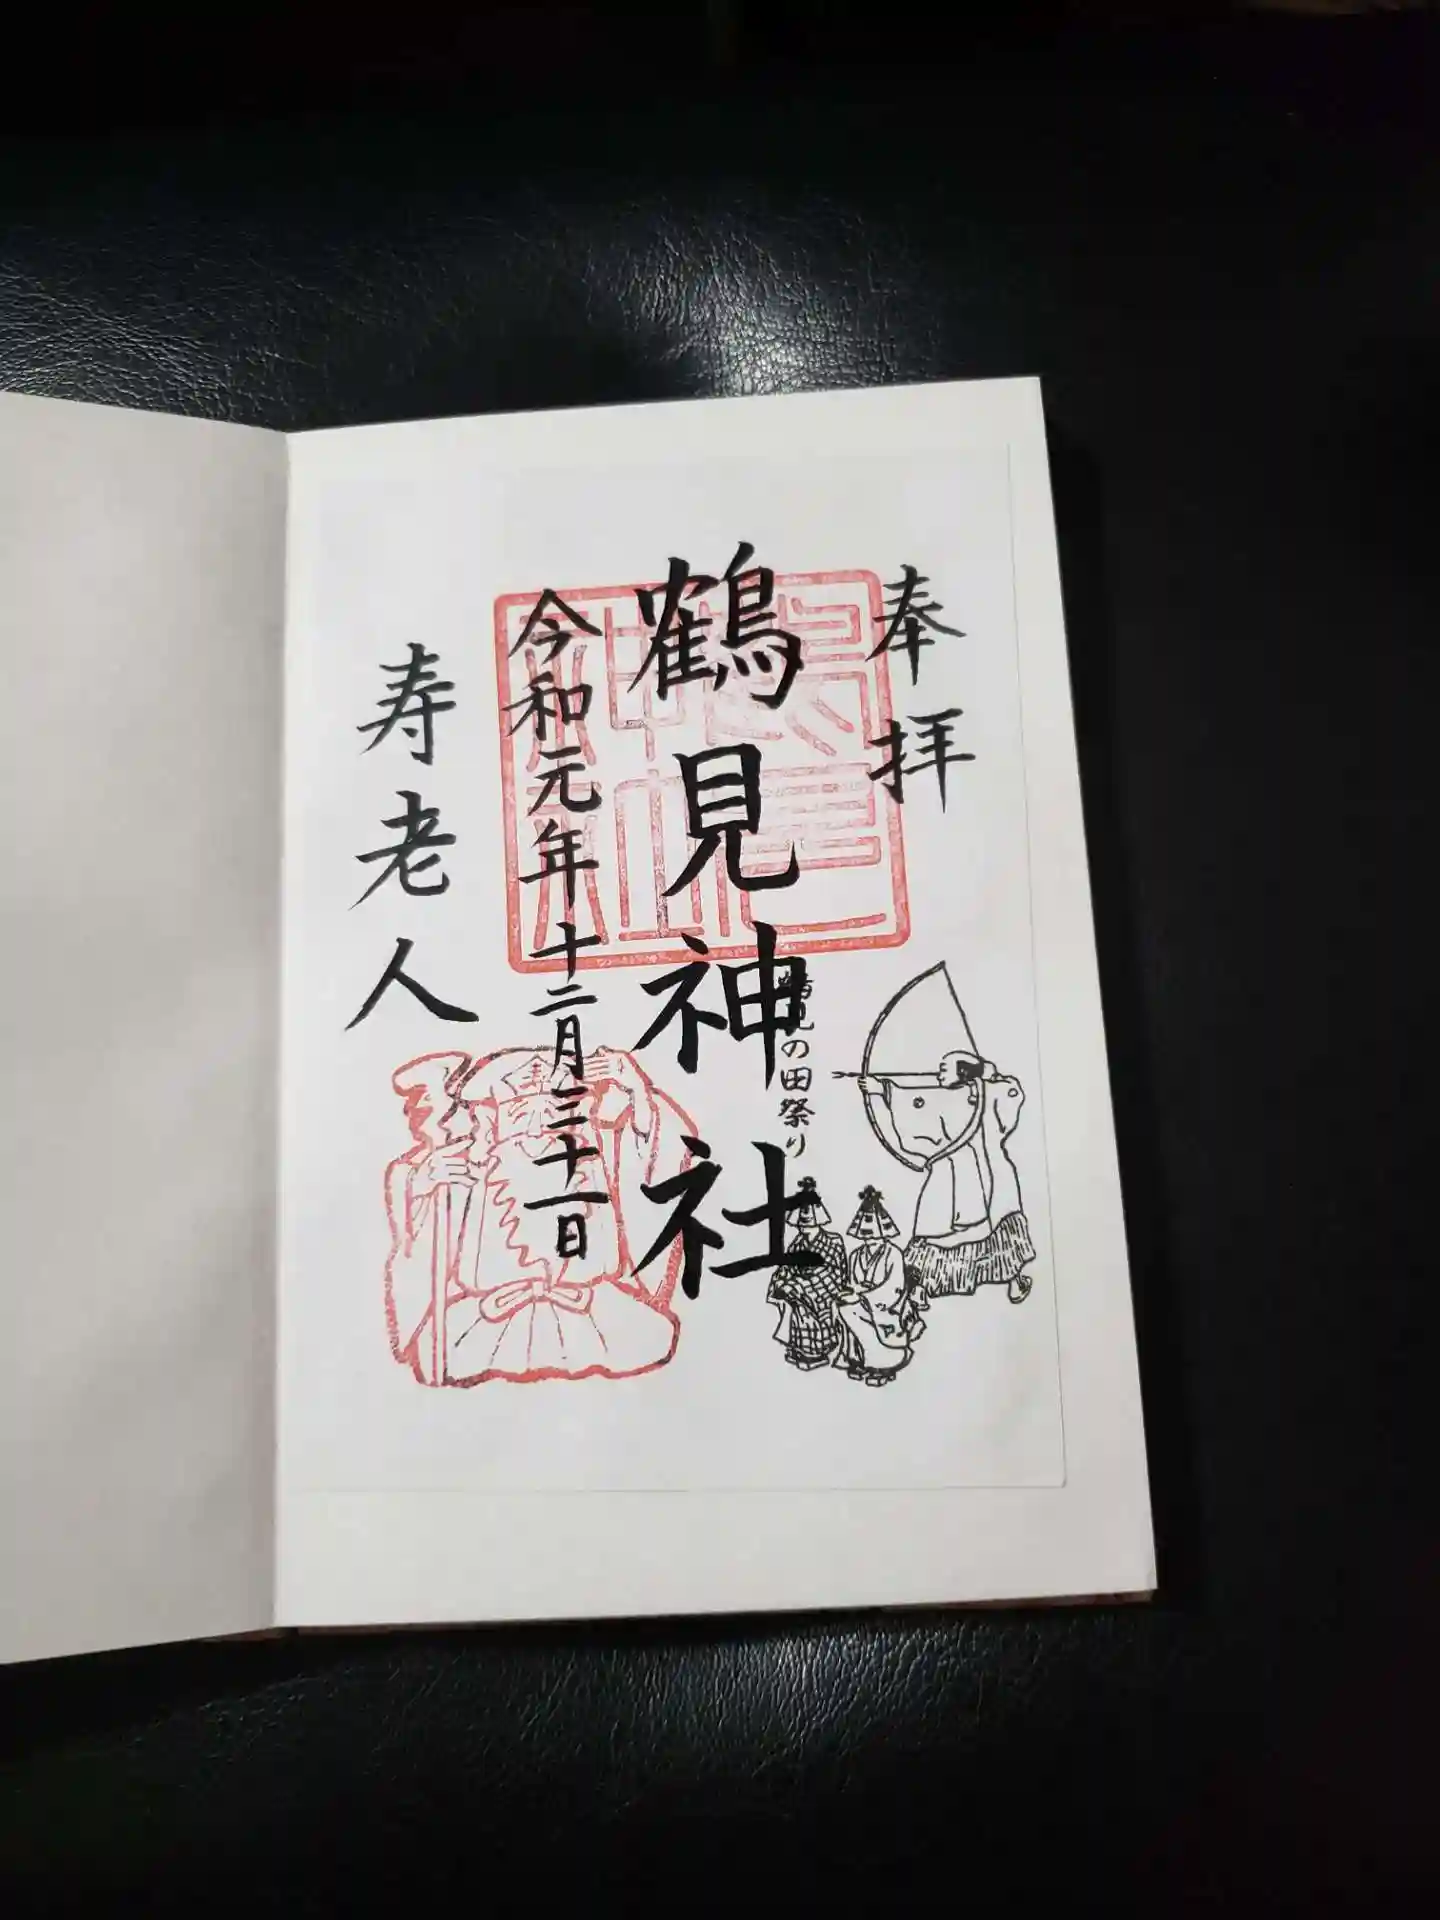 奉拝
鶴見神社
鶴見の田祭り
令和元年十二月三十一日
寿老人